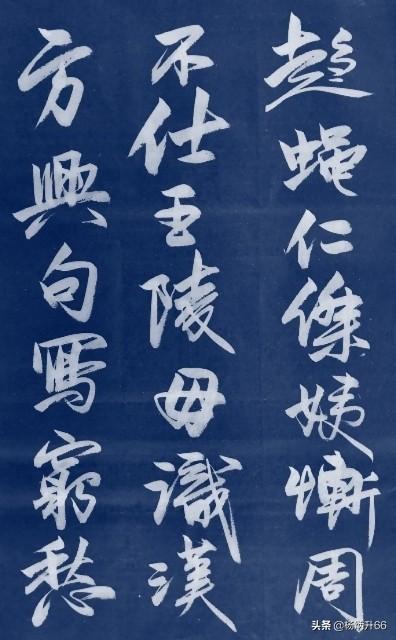 趨蠅仁傑姨慚周
不仕王陵母識漢
方興句寫窮愁
头条 @杨炳升66